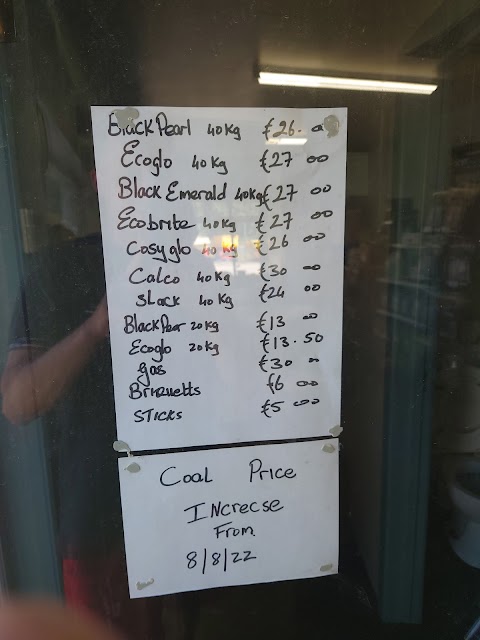 Black Pearl 40Kg £26.00
Ecoglo 40Kg £27 00
Black Emerald 40Kg £27 00
Ecobrite 40Kg £27 00
Cosyglo 40Kg £26 00
Calco 40Kg £30 00
Slack 40Kg £24 00
Black Pear 20Kg £13 00
Ecoglo 20Kg £13.50
Gas £30 00
Briquetts £6 00
STICKS £5 00
Coal Price
INcrecse
From
8/8/22